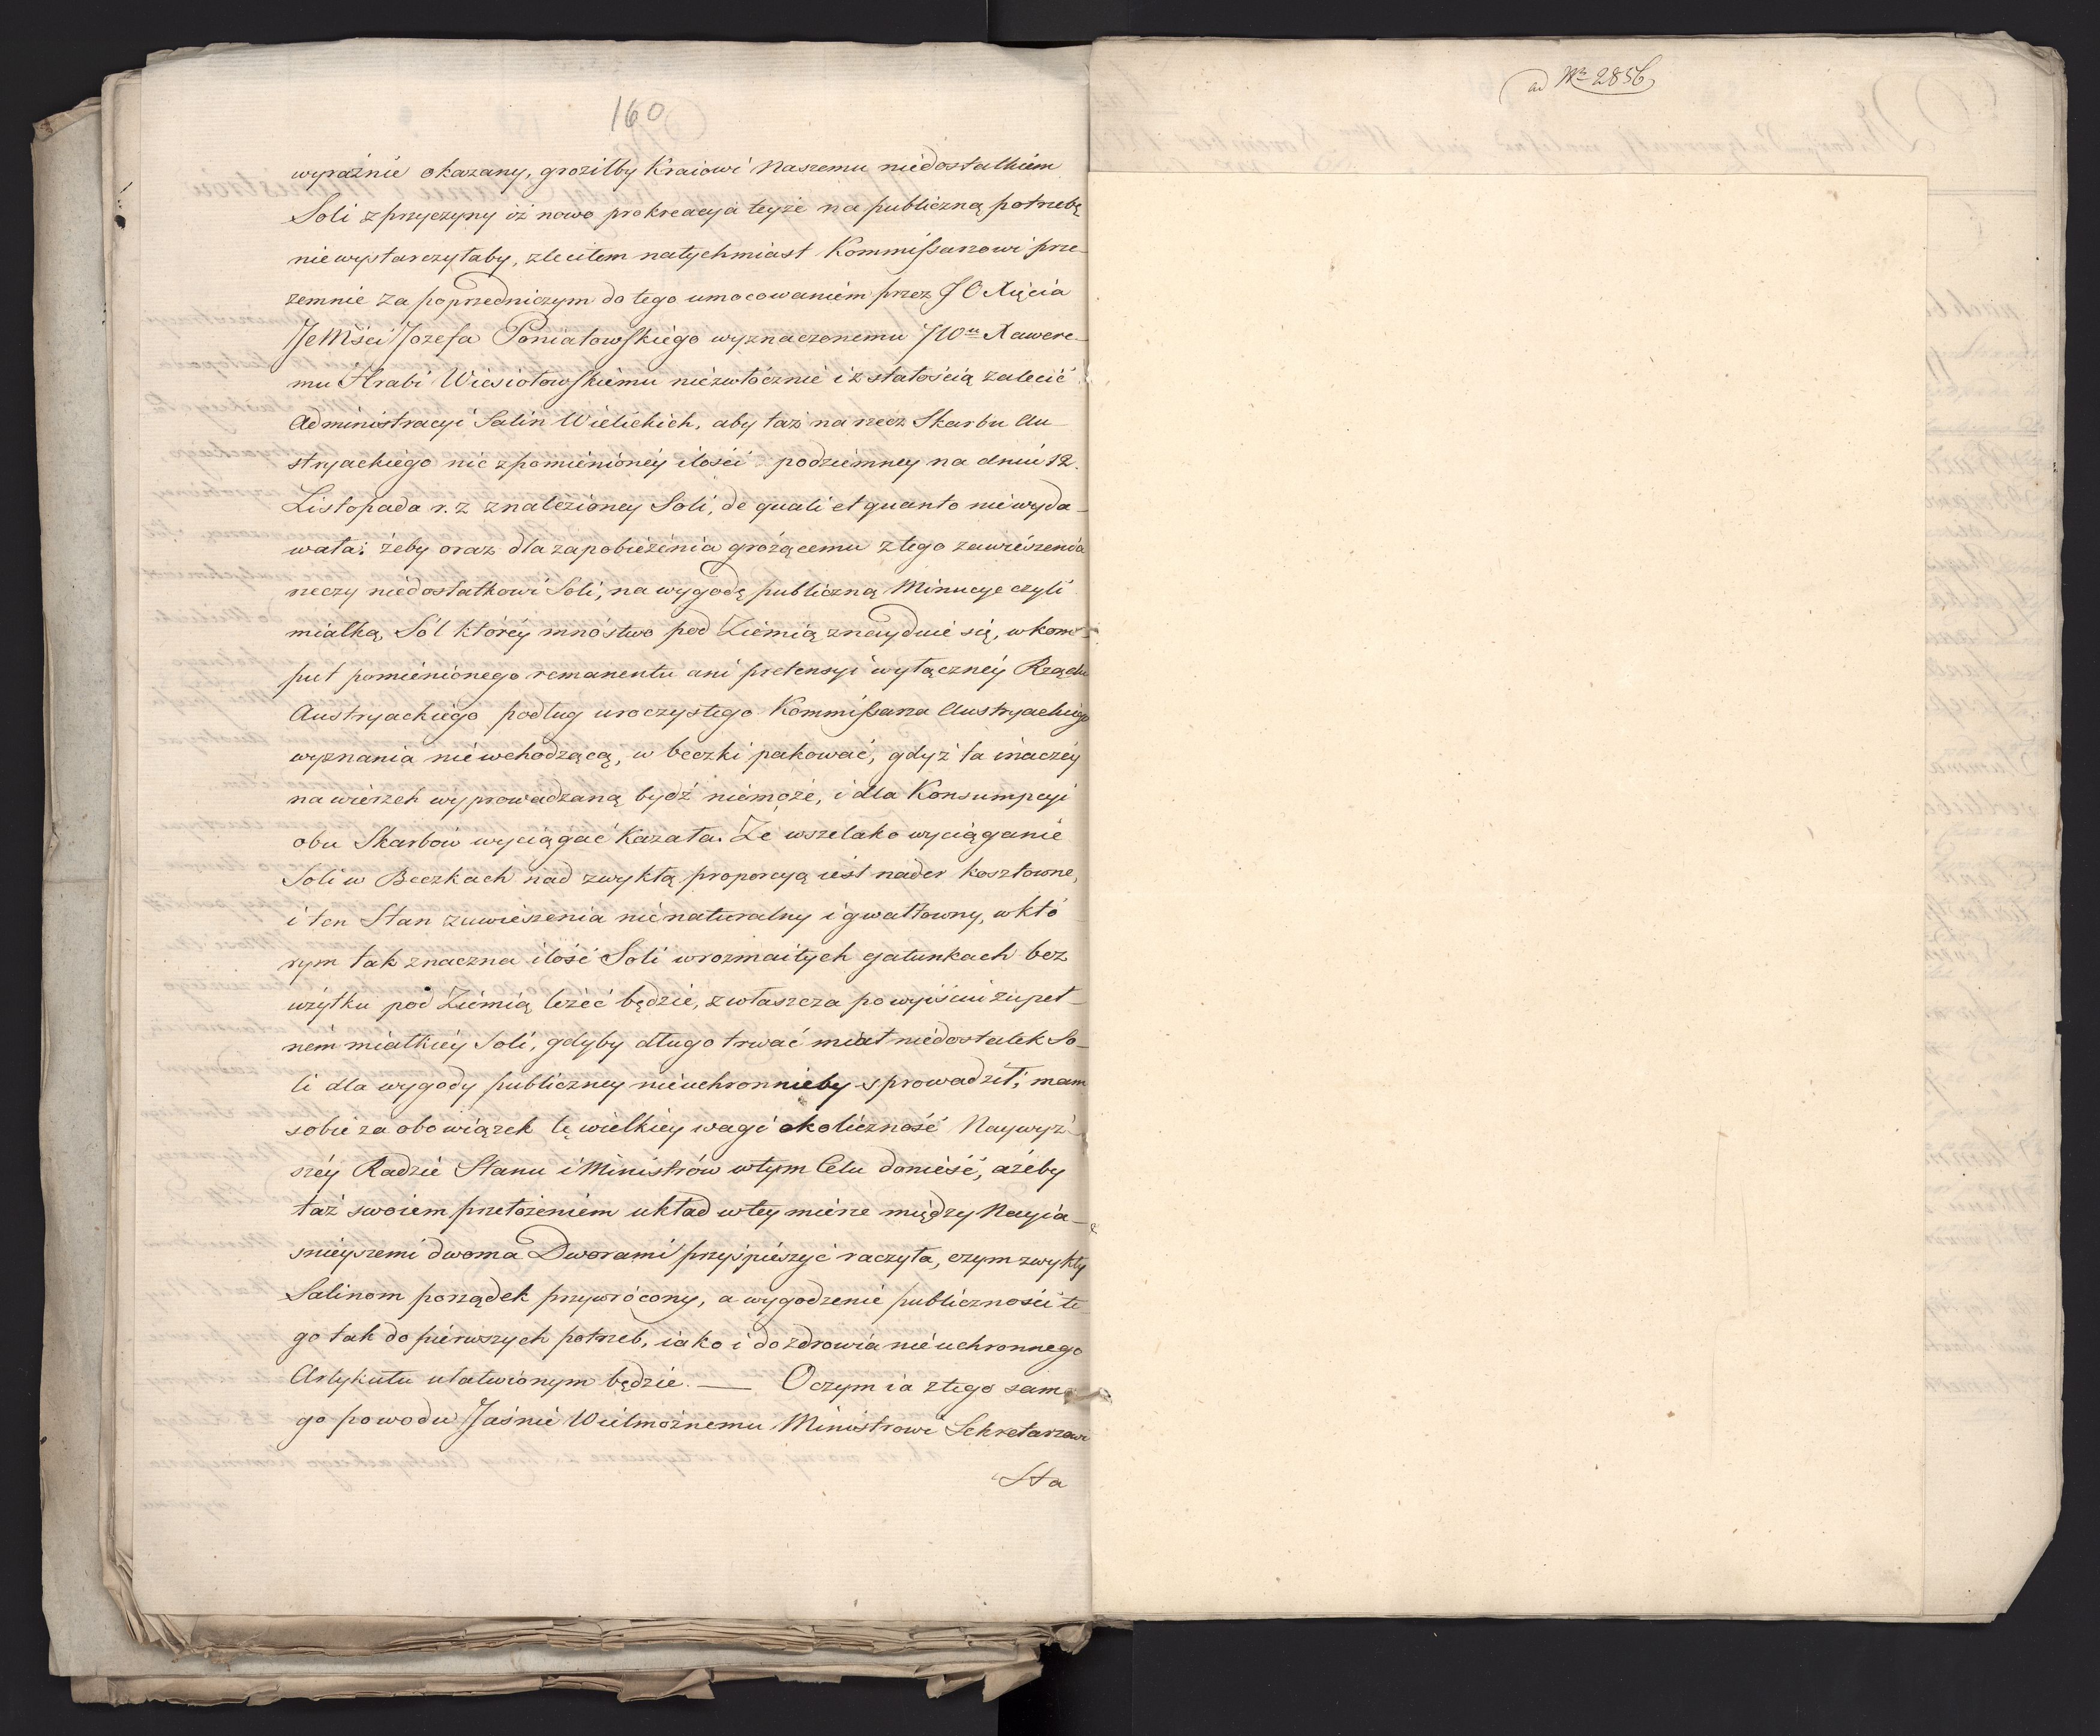 160
wyraźnie okazany, groziłby Kraiowi Naszemu niedostatkiem
Soli z przyczyny iż nowo prokreacya teyże na publiczną potrzebę
niewystarczyłaby, zleciłem natychmiast Kommissarzowi prze-
zemnie za poprzedniczym do tego umocowaniem przez JO Xięcia
JeMści Jozefa Poniatowskiego wyznaczonemu JWu Xawere-
mu Hrabi Wiesiołowskiemu niezwłocznie i z stałością zalecić
Administracyi Salin Wielickich, aby taż na rzecz Skarbu Au-
stryackiego nic z pomienioney ilości podziemney na dniu 12.
Listopada r. z znalezioney Soli, de quali et quanto niewyda-
wała; żeby oraz dla zapobieżenia grożącemu z tego zawieszenia
rzeczy niedostatkowi Soli, na wygodę publiczną Minucye czyli
miałką Sól którey mnóstwo pod Ziemią znayduie się, w kom-
put pomienionego remanentu ani pretensyi wyłączney Rządu
Austryackiego podług uroczystego Kommissarza Austryackiego
wyznania niewchodzącą, w beczki pakować, gdyż ta inaczey
na wierzch wyprowadzaną bydź niemoże, i dla Konsumpcyi
obu Skarbów wyciągać kazała. Że wszelako wyciąganie
Soli w Beczkach nad zwykłą proporcyą iest nader kosztowne,
i ten Stan zawieszenia nienaturalny i gwałtowny, w któ
rym tak znaczna ilość Soli w rozmaitych gatunkach bez
użytku pod Ziemią leżeć będzie, zwłaszcza po wyiściu zupeł-
nem miałkiey Soli, gdyby długo trwać miał niedostatek So-
li dla wygody publiczney nieuchronnieby sprowadził; mam
sobie za obowiązek tę wielkiey wagi okoliczność Naywyż-
széy Radzie Stanu i Ministrów w tym Celu donieść, ażeby
taż swoiem przełożeniem układ w tey mierze między Nayia-
snieyszemi dwoma Dworami przyśpieszyć raczyła, czym zwykły
Salinom porządek przywrócony, a wygodzenie publiczności te-
go tak do pierwszych potrzeb, iako i do zdrowia nieuchronnego
Artykułu ułatwionym będzie. — O czym ia z tego same
go powodu Jaśnie Wielmożnemu Ministrowi Sekretarzowi
Sta
ad Nr 2856